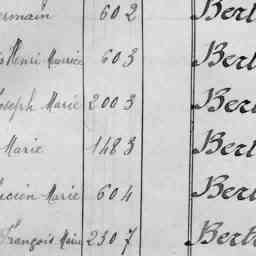 ermain 602 Bert
s Henri Maurice 603 Bert
oseph Marie 2003 Bert
Marie 1483 Bert
ucien Marie 604 Bert
François Marie 2307 Bert